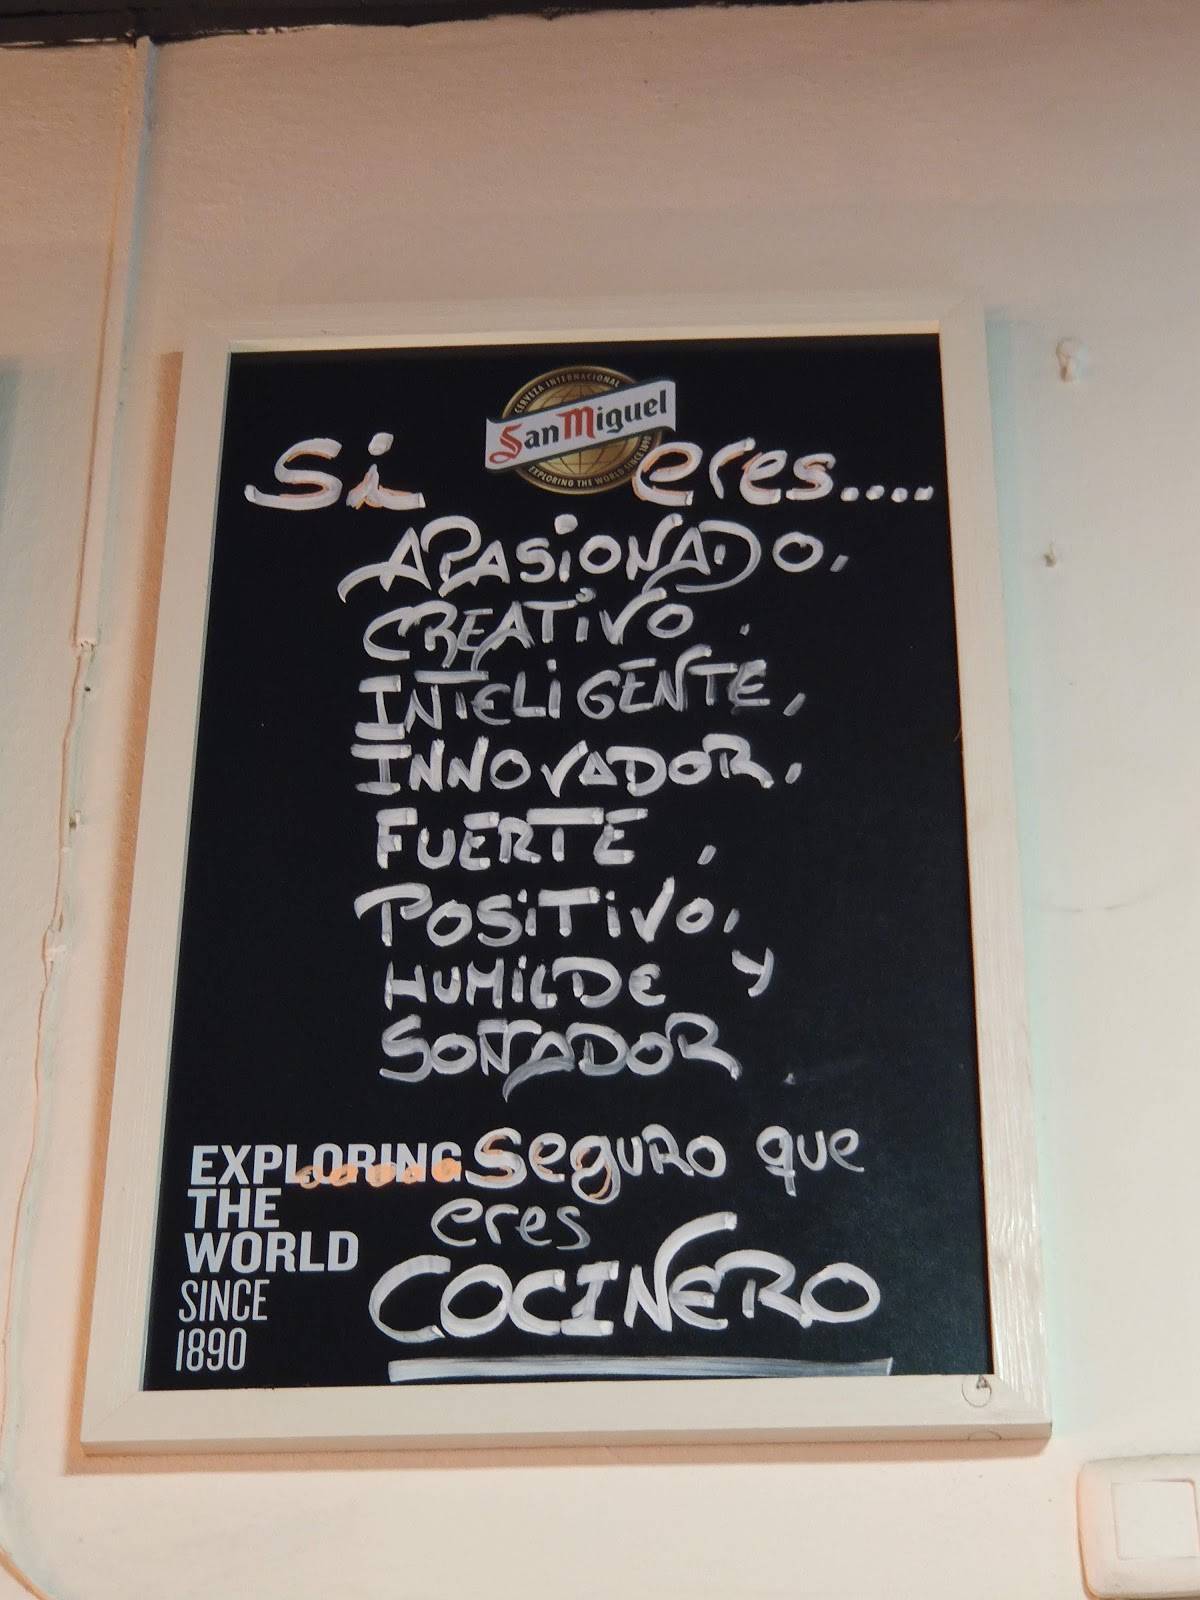 CERVEZA INTERNACIONAL
San Miguel
EXPLORING THE WORLD SINCE 1890
Si eres....
APASIONADO,
CREATIVO.
INTELIGENTE,
INNOVADOR,
FUERTE,
POSITIVO,
HUMILDE y
SOÑADOR
Seguro que
eres
COCINERO
EXPLORING
THE
WORLD
SINCE
1890